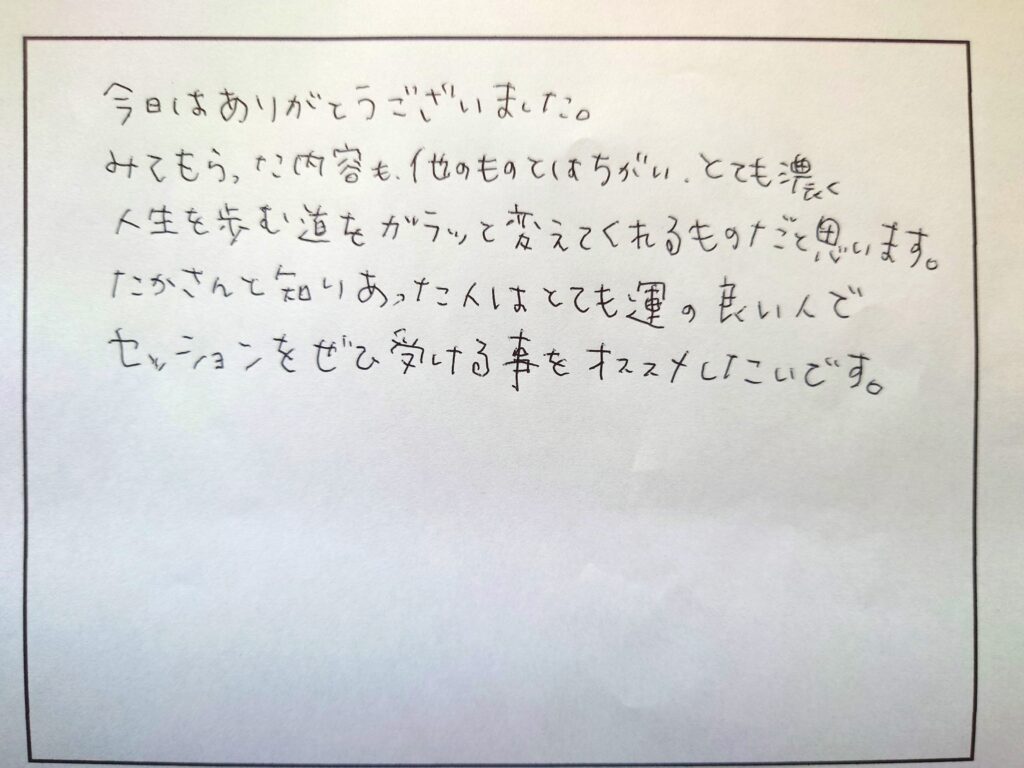 今日はありがとうございました。
みてもらった内容も、他のものとはちがい、とても濃く
人生を歩む道をガラッと変えてくれるものだと思います。
たかさんと知りあった人はとても運の良い人で
セッションをぜひ受ける事をオススメしたいです。